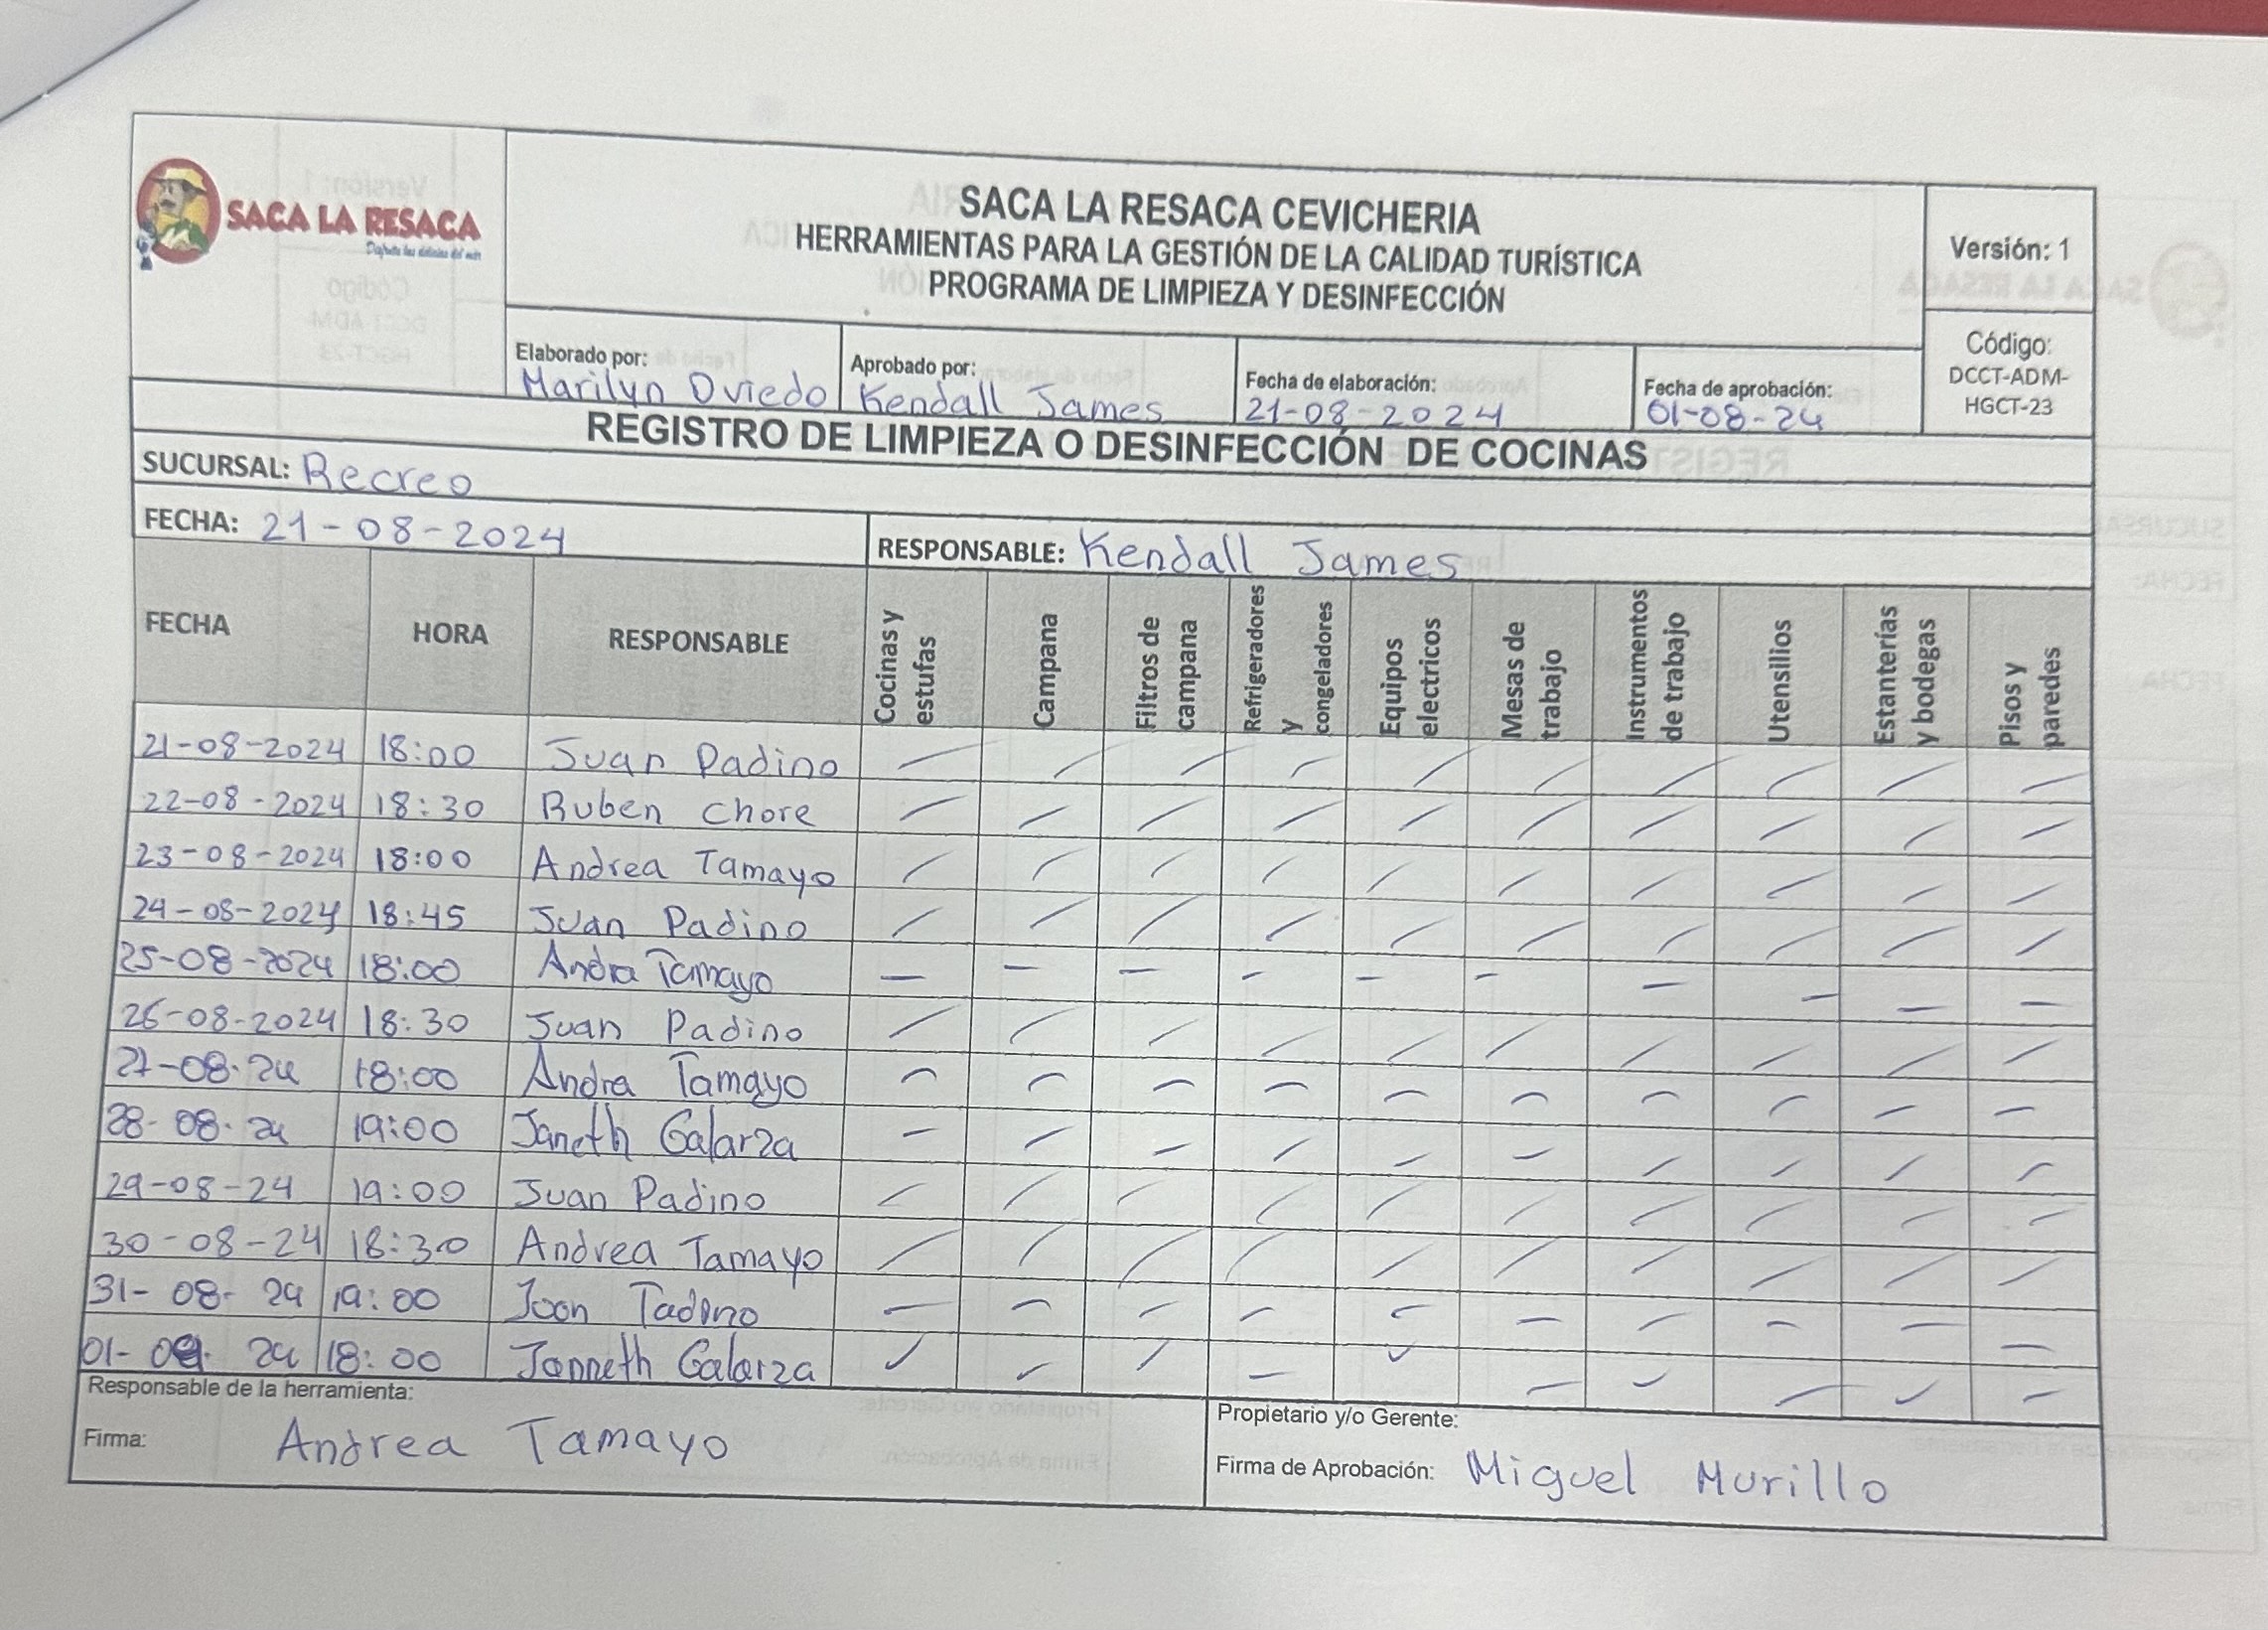 SACA LA RESACA
SACA LA RESACA CEVICHERIA
HERRAMIENTAS PARA LA GESTIÓN DE LA CALIDAD TURÍSTICA
PROGRAMA DE LIMPIEZA Y DESINFECCIÓN
Versión: 1
Código:
DCCT-ADM-
HGCT-23
Elaborado por: Marilyn Oviedo
Aprobado por: Kendall James
Fecha de elaboración: 21-08-2024
Fecha de aprobación: 01-08-24
REGISTRO DE LIMPIEZA O DESINFECCIÓN DE COCINAS
SUCURSAL: Recreo
FECHA: 21-08-2024 RESPONSABLE: Kendall James
FECHA HORA RESPONSABLE Cocinas y estufas Campana Filtros de campana Refrigeradores y congeladores Equipos electricos Mesas de trabajo Instrumentos de trabajo Utensilios Estanterías y bodegas Pisos y paredes
21-08-2024 18:00 Juan Padino
22-08-2024 18:30 Ruben Chore
23-08-2024 18:00 Andrea Tamayo
24-08-2024 18:45 Juan Padino
25-08-2024 18:00 Andra Tamayo
26-08-2024 18:30 Juan Padino
27-08-24 18:00 Andra Tamayo
28-08-24 19:00 Janeth Galarza
29-08-24 19:00 Juan Padino
30-08-24 18:30 Andrea Tamayo
31-08-24 19:00 Joan Tadino
01-09-24 18:00 Janneth Galarza
Responsable de la herramienta:
Firma: Andrea Tamayo
Propietario y/o Gerente:
Firma de Aprobación: Miguel Murillo